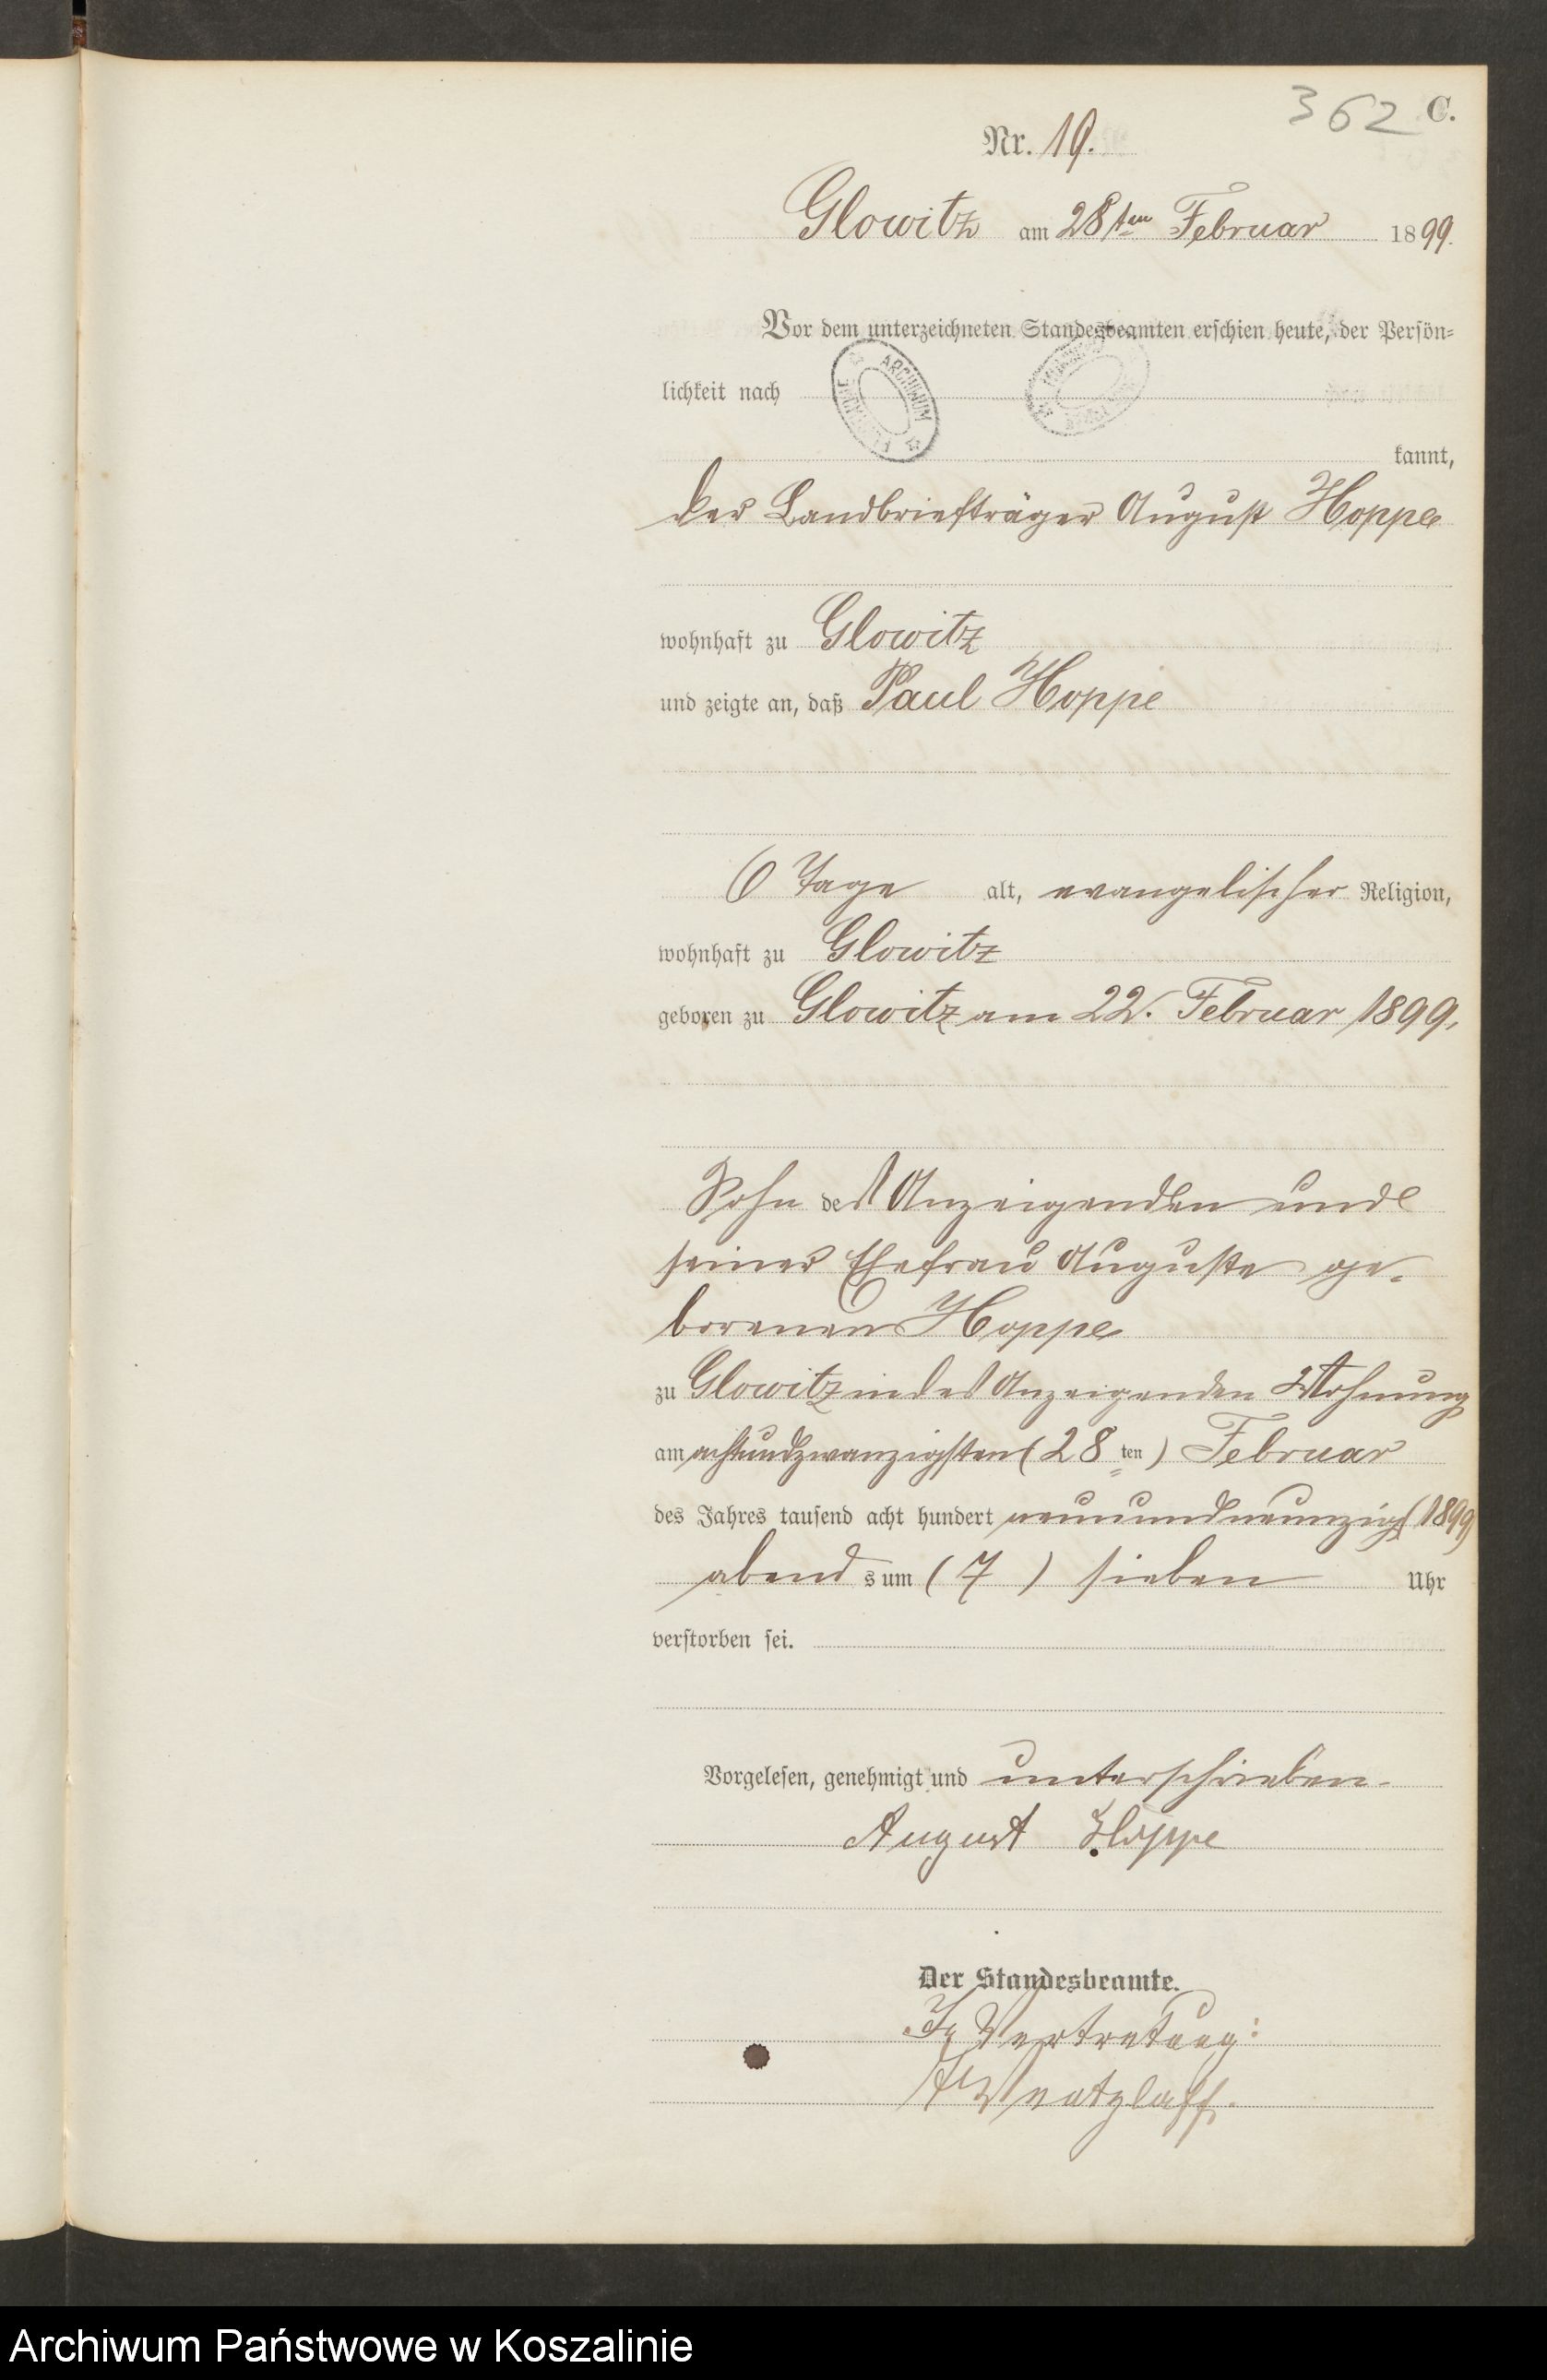 362 C.
Nr. 19.
Glowitz am 28ten Februar 1899.
Vor dem unterzeichneten Standesbeamten erschien heute, der Persön-
lichkeit nach
kannt,
der Landbriefträger August Hoppe
wohnhaft zu Glowitz
und zeigte an, daß Paul Hoppe
6 Tage alt, evangelischer Religion,
wohnhaft zu Glowitz
geboren zu Glowitz am 22. Februar 1899,
Sohn des Anzeigenden und
seiner Ehefrau Auguste ge-
borenen Hoppe
zu Glowitz in des Anzeigenden Wohnung
am achtundzwanzigsten (28ten) Februar
des Jahres tausend acht hundert neunundneunzig (1899)
abends um (7) sieben Uhr
verstorben sei.
Vorgelesen, genehmigt und unterschrieben.
August Hoppe
Der Standesbeamte.
In Vertretung:
Archiwum Państwowe w Koszalinie